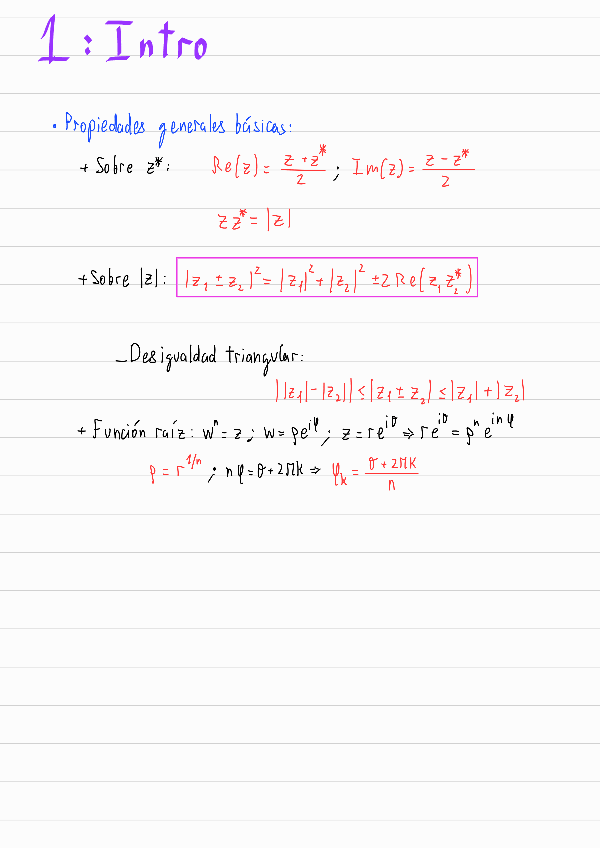 1: Intro
• Propiedades generales básicas:
+ Sobre z*: Re(z) = (z + z*)/2 ; Im(z) = (z - z*)/2
z z* = |z|
+ Sobre |z|: |z₁ ± z₂|² = |z₁|² + |z₂|² ± 2 Re(z₁ z₂*)
_Desigualdad triangular:
||z₁| - |z₂|| ≤ |z₁ ± z₂| ≤ |z₁| + |z₂|
+ Función raíz: wⁿ = z ; w = ρe^{iφ} ; z = re^{iθ} ⇒ re^{iθ} = ρⁿ e^{inφ}
ρ = r^{1/n} ; nφ = θ + 2πk ⇒ φₖ = (θ + 2πk)/n